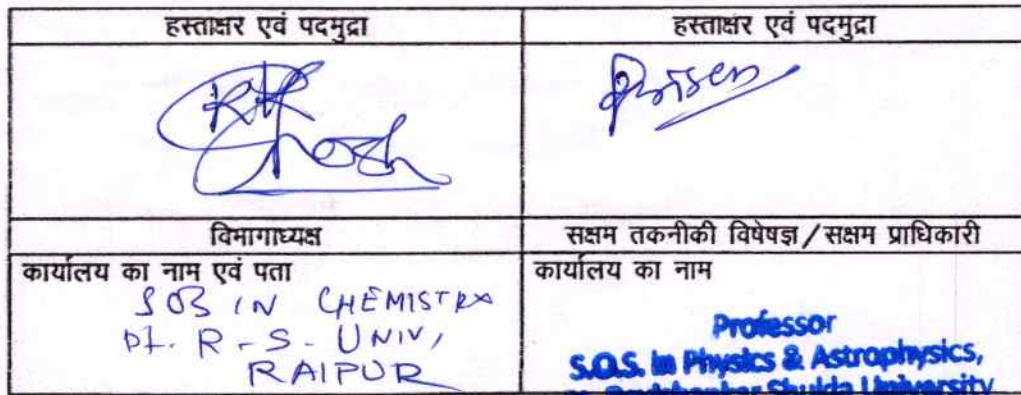 हस्ताक्षर एवं पदमुद्रा
हस्ताक्षर एवं पदमुद्रा
विभागाध्यक्ष
सक्षम तकनीकी विषेषज्ञ / सक्षम प्राधिकारी
कार्यालय का नाम एवं पता
SOS IN CHEMISTRY
Pt. R. S. UNIV,
RAIPUR
कार्यालय का नाम
Professor
S.O.S. in Physics & Astrophysics,
Shukla University